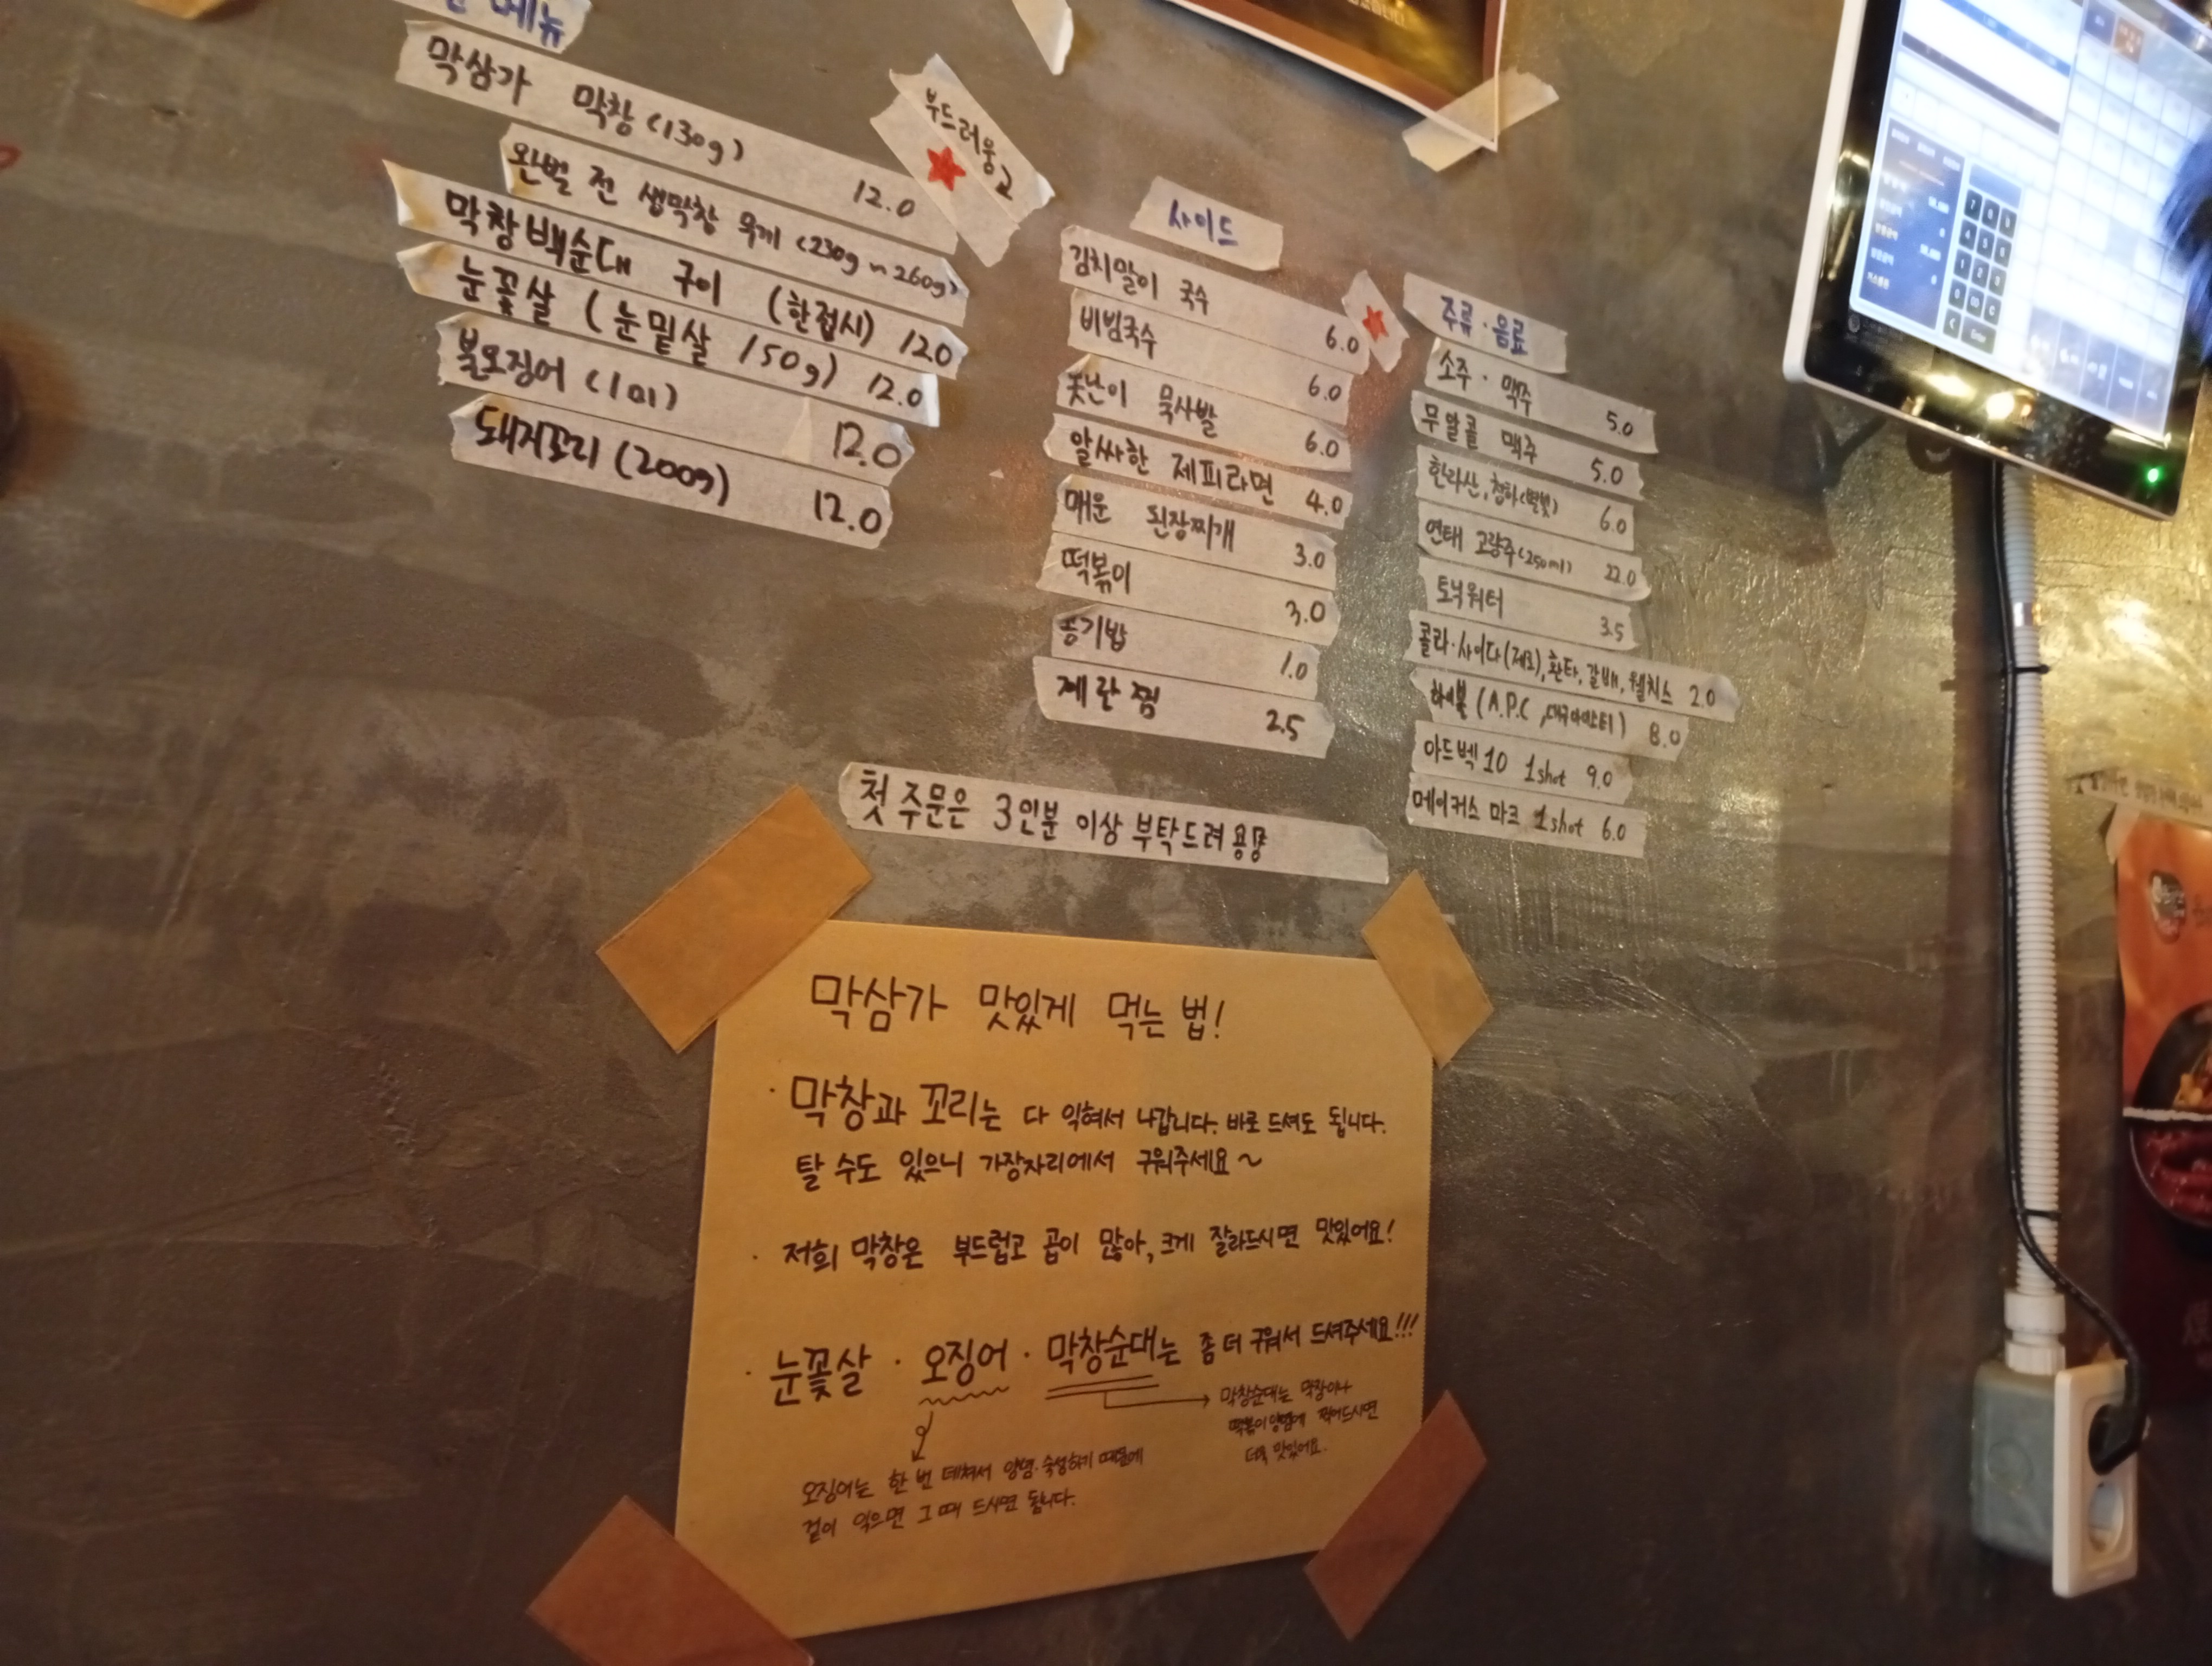 메뉴
막삼가 막창 (130g) 12.0
부드러웅고
완벌 전 생막창 무게 (230g ~ 260g)
막창백순대 구이 (한접시) 12.0
눈꽃살 (눈밑살 150g) 12.0
불오징어 (1미) 12.0
돼지꼬리 (200g) 12.0
사이드
김치말이 국수 6.0
비빔국수 6.0
못난이 묵사발 6.0
알싸한 제피라면 4.0
매운 된장찌개 3.0
떡볶이 3.0
공기밥 1.0
계란찜 2.5
주류·음료
소주·맥주 5.0
무알콜 맥주 5.0
한라산, 청하(별빛) 6.0
연태 고량주(250ml) 22.0
토닉워터 3.5
콜라·사이다(제로), 환타, 갈배, 웰치스 2.0
하이볼 (A.P.C, ) 8.0
아드벡10 1shot 9.0
메이커스 마크 1shot 6.0
첫 주문은 3인분 이상 부탁드려용
막삼가 맛있게 먹는 법!
· 막창과 꼬리는 다 익혀서 나갑니다. 바로 드셔도 됩니다.
탈 수도 있으니 가장자리에서 구워주세요~
· 저희 막창은 부드럽고 곱이 많아, 크게 잘라드시면 맛있어요!
· 눈꽃살 · 오징어 · 막창순대는 좀 더 구워서 드셔주세요!!!
막창순대는 막장이나
떡볶이양념에 찍어드시면
더욱 맛있어요.
오징어는 한 번 데쳐서 양념·숙성하기 때문에
겉이 익으면 그 때 드시면 됩니다.